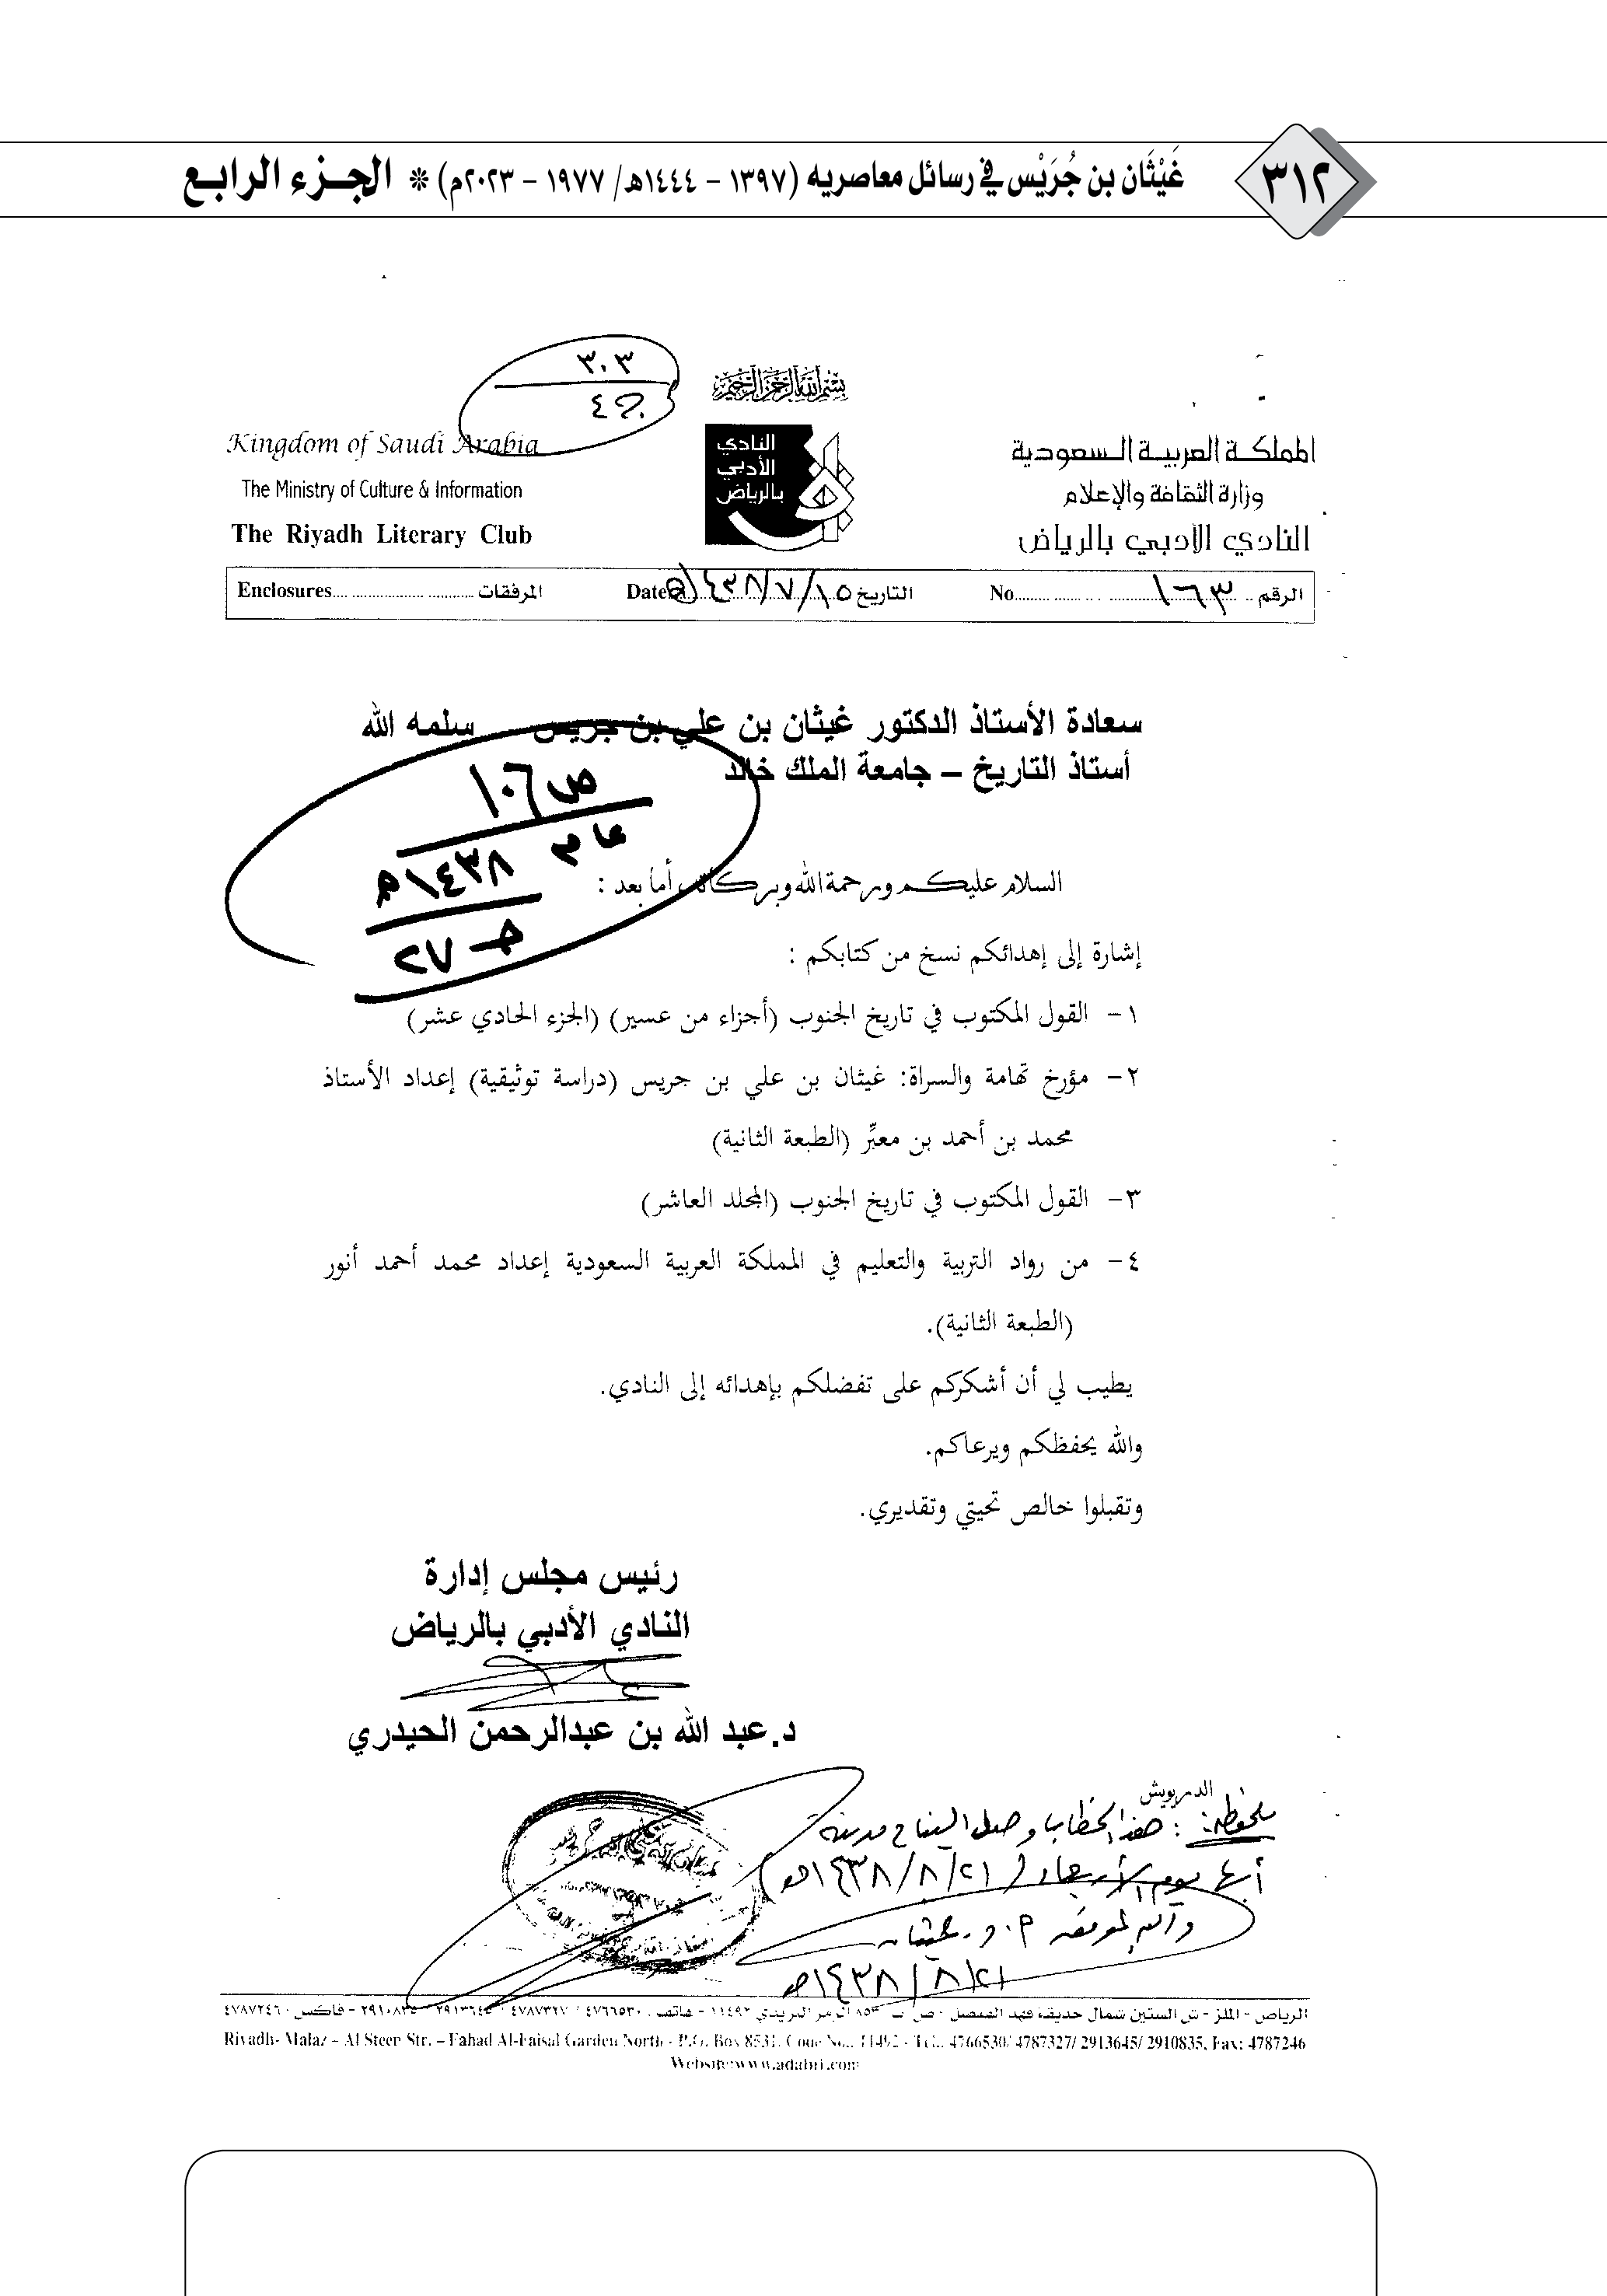 غَيْثَان بن جُرَيْس في رسائل معاصريه (١٣٩٧ - ١٤٤٤هـ/ ١٩٧٧ - ٢٠٢٣م) * الجزء الرابع
٣١٢
٣٠٣
بسم الله الرحمن الرحيم
المملكة العربية السعودية
وزارة الثقافة والإعلام
النادي الأدبي بالرياض
النادي
الأدبي
بالرياض
Kingdom of Saudi Arabia
The Ministry of Culture & Information
The Riyadh Literary Club
الرقم ١٦٣ No. التاريخ ١٤٣٨/٧/١٥هـ Date المرفقات Enclosures
سعادة الأستاذ الدكتور غيثان بن علي بن جريس سلمه الله
أستاذ التاريخ – جامعة الملك خالد
ص ١٠٦
عام ١٤٣٨هـ
جـ ٢٧
السلام عليكم ورحمة الله وبركاته أما بعد :
إشارة إلى إهدائكم نسخ من كتابكم :
١- القول المكتوب في تاريخ الجنوب (أجزاء من عسير) (الجزء الحادي عشر)
٢- مؤرخ تهامة والسراة: غيثان بن علي بن جريس (دراسة توثيقية) إعداد الأستاذ
محمد بن أحمد بن معبِّر (الطبعة الثانية)
٣- القول المكتوب في تاريخ الجنوب (المجلد العاشر)
٤- من رواد التربية والتعليم في المملكة العربية السعودية إعداد محمد أحمد أنور
(الطبعة الثانية).
يطيب لي أن أشكركم على تفضلكم بإهدائه إلى النادي.
والله يحفظكم ويرعاكم.
وتقبلوا خالص تحيتي وتقديري.
رئيس مجلس إدارة
النادي الأدبي بالرياض
د.عبد الله بن عبدالرحمن الحيدري
الدرويش
ملحوظة: هذا الخطاب وصل الينا في مدينة
أبها يوم الأربعاء (١٤٣٨/٨/٢١هـ)
والله الموفق أ.د. غيثان
١٤٣٨/٨/٢١هـ
الرياض - الملز - ش الستين شمال حديقة فهد الفيصل - ص ب ٨٥٣١ الرمز البريدي ١١٤٩٢ - هاتف : ٤٧٦٦٥٣٠ / ٤٧٨٧٣٢٧ / ٢٩١٣٦٤٥ / ٢٩١٠٨٣٥ - فاكس : ٤٧٨٧٢٤٦
Riyadh- Malaz – Al Steen Str. – Fahad Al-Faisal Garden North - P.O. Box 8531. Code No.. 11492 - Tel.. 4766530/ 4787327/ 2913645/ 2910835, Fax: 4787246
Website:www.adabri.com